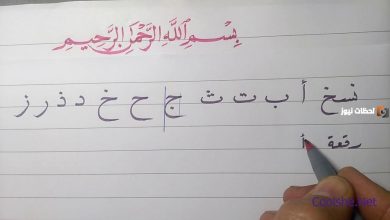 بِسْمِ اللَّهِ الرَّحْمَٰنِ الرَّحِيمِ
نسخ أ ب ت ث ج ح خ د ذ ر ز
رقعة أ
لحظات نيوز
Coolshe.Net